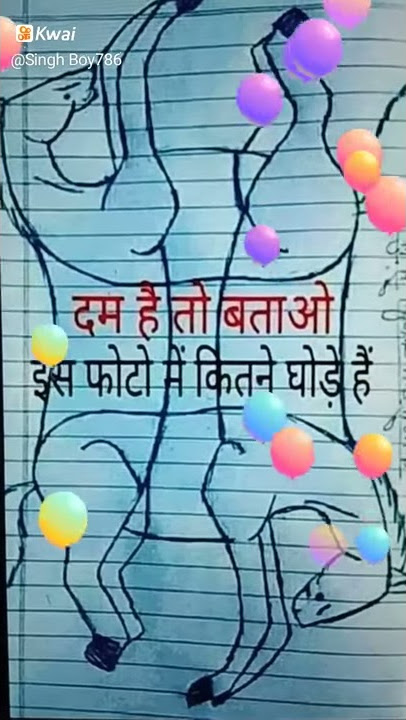 Kwai
@Singh Boy786
दम है तो बताओ
इस फोटो में कितने घोड़े हैं